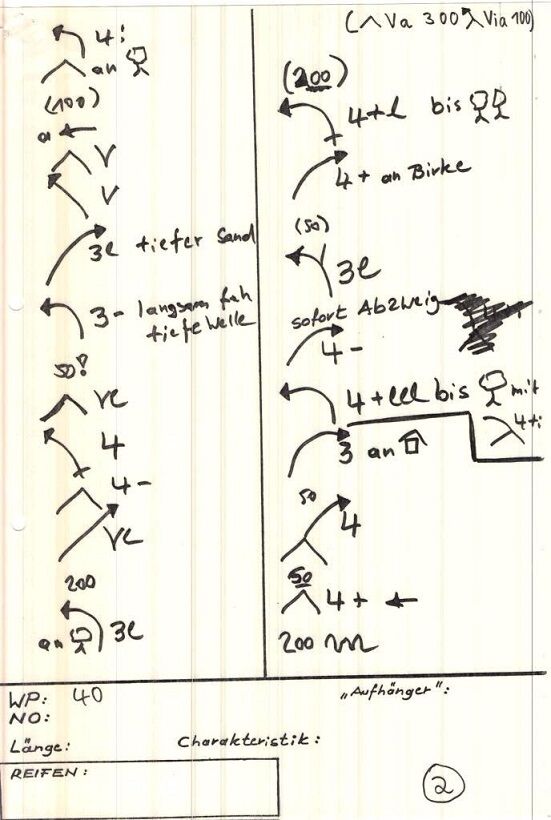 (Va 300 Via 100)
4!
an
(100)
a
V
V
3l tiefer Sand
3- langsam
tiefe Welle
50!
Vl
4
4-
Vl
200
an 3l
(200)
4+l bis
4+ an Birke
(50)
3l
sofort Abzweig
4-
4+lll bis mit
4+i
3 an
50
4
50
4+
200
WP: 40
NO:
Länge:
Charakteristik:
„Aufhänger":
REIFEN:
2